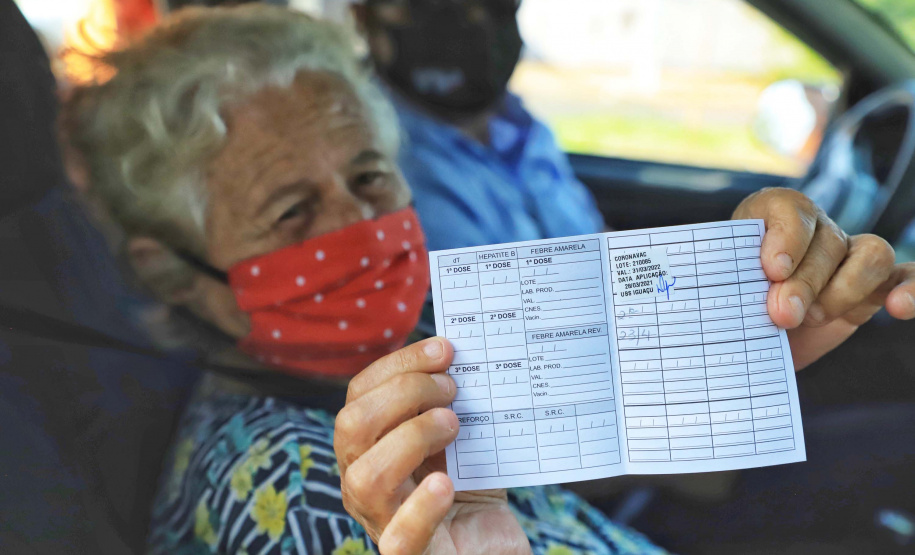 dT HEPATITE B FEBRE AMARELA
1ª DOSE 1ª DOSE 1ª DOSE
LOTE
LAB. PROD
VAL
CNES
Vacin
2ª DOSE 2ª DOSE
FEBRE AMARELA REV.
LOTE
LAB. PROD
VAL
CNES
Vacin
3ª DOSE 3ª DOSE
REFORÇO S.R.C. S.R.C.
CORONAVAC
LOTE: 210065
VAL: 31/03/2022
DATA APLICAÇÃO:
26/03/2021
UBS IGUAÇU
23/4